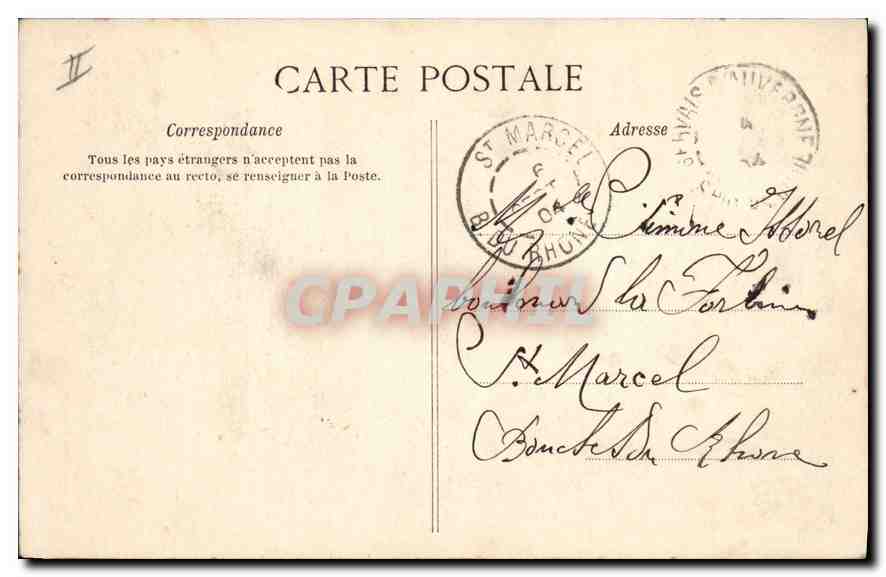 II
CARTE POSTALE
Correspondance
Tous les pays étrangers n'acceptent pas la
correspondance au recto, se renseigner à la Poste.
Adresse
ST MARCEL
6
04
B. DU RHÔNE
ST GERVAIS D'AUVERGNE
CPAPHIL
Mlle Simone Morel
boulevard la Forbine
St Marcel
Bouches du Rhone